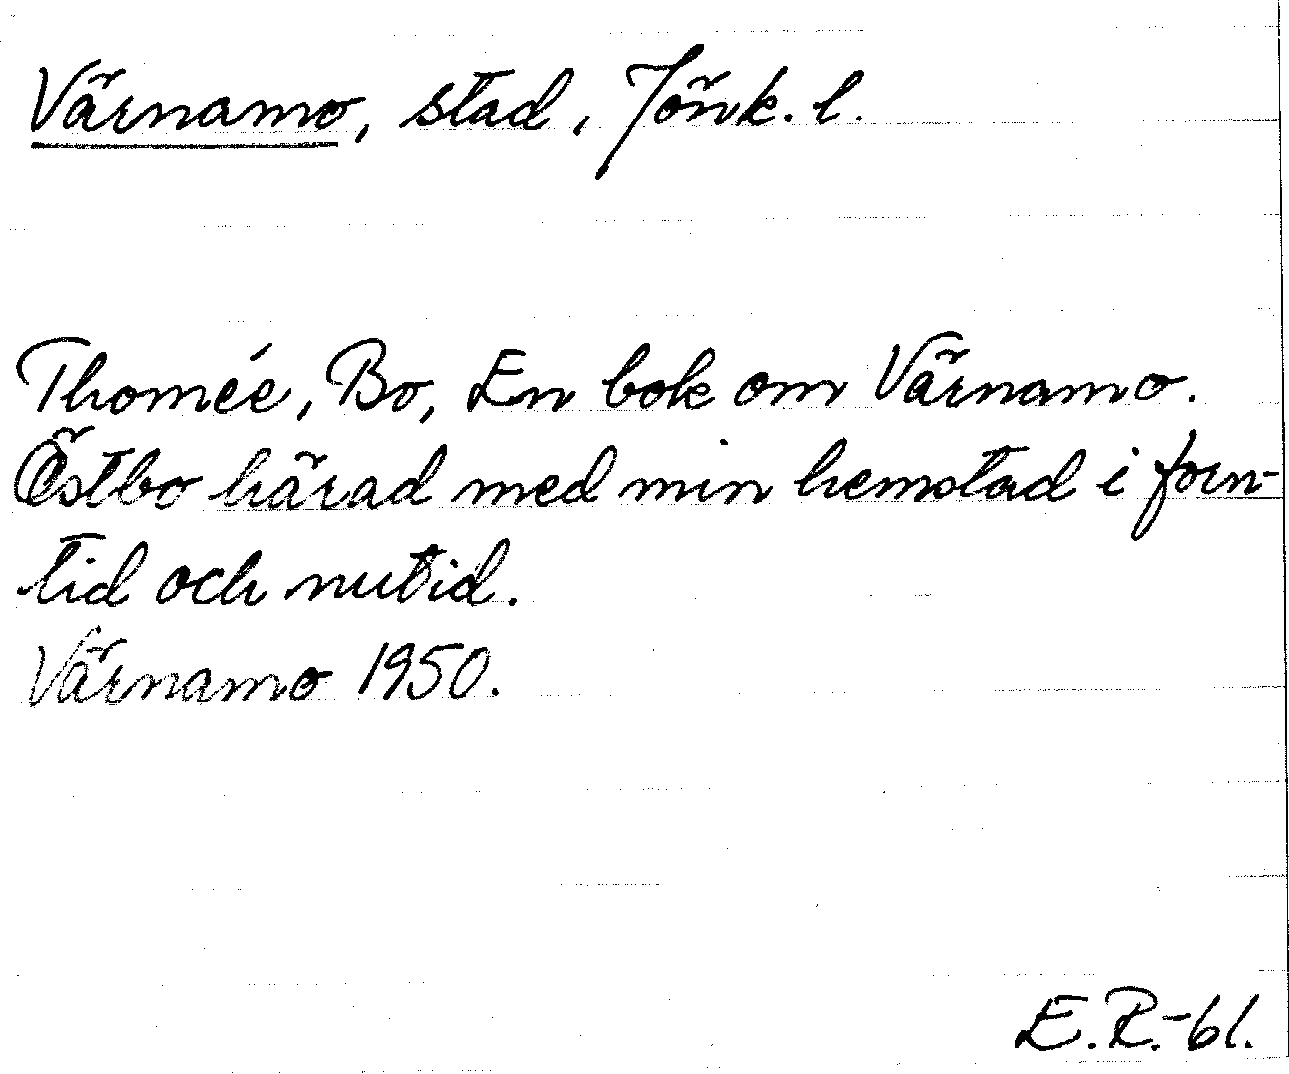 Värnamo, stad, Jönk. l.
Thomée, Bo, En bok om Värnamo.
Östbo härad med min hemstad i forn-
tid och nutid.
Värnamo 1950.
E.R.-61.